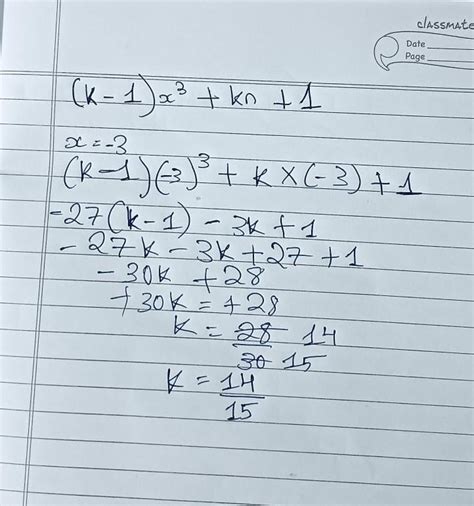 classmate
Date
Page
(k-1)x³ + kn + 1
x = -3
(k-1)(-3)³ + k×(-3) + 1
-27(k-1) - 3k + 1
- 27k - 3k + 27 + 1
- 30k + 28
+30k = +28
k = 28/30 14/15
k = 14/15